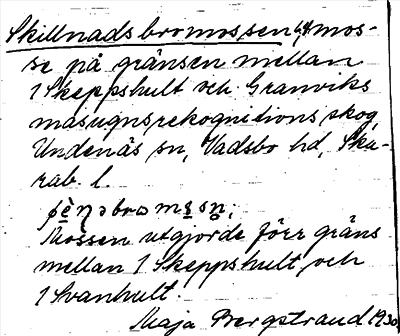 Skillnadsbromossen, mos-
se på gränsen mellan
1 Skeppshult och Granviks
masugnsrekognitionsskog,
Undenäs sn, Vadsbo hd, Ska-
rab. l.
Mossen utgjorde förr gräns
mellan 1 Skeppshult och
1 Svanhult.
Maja Bergstrand 1930